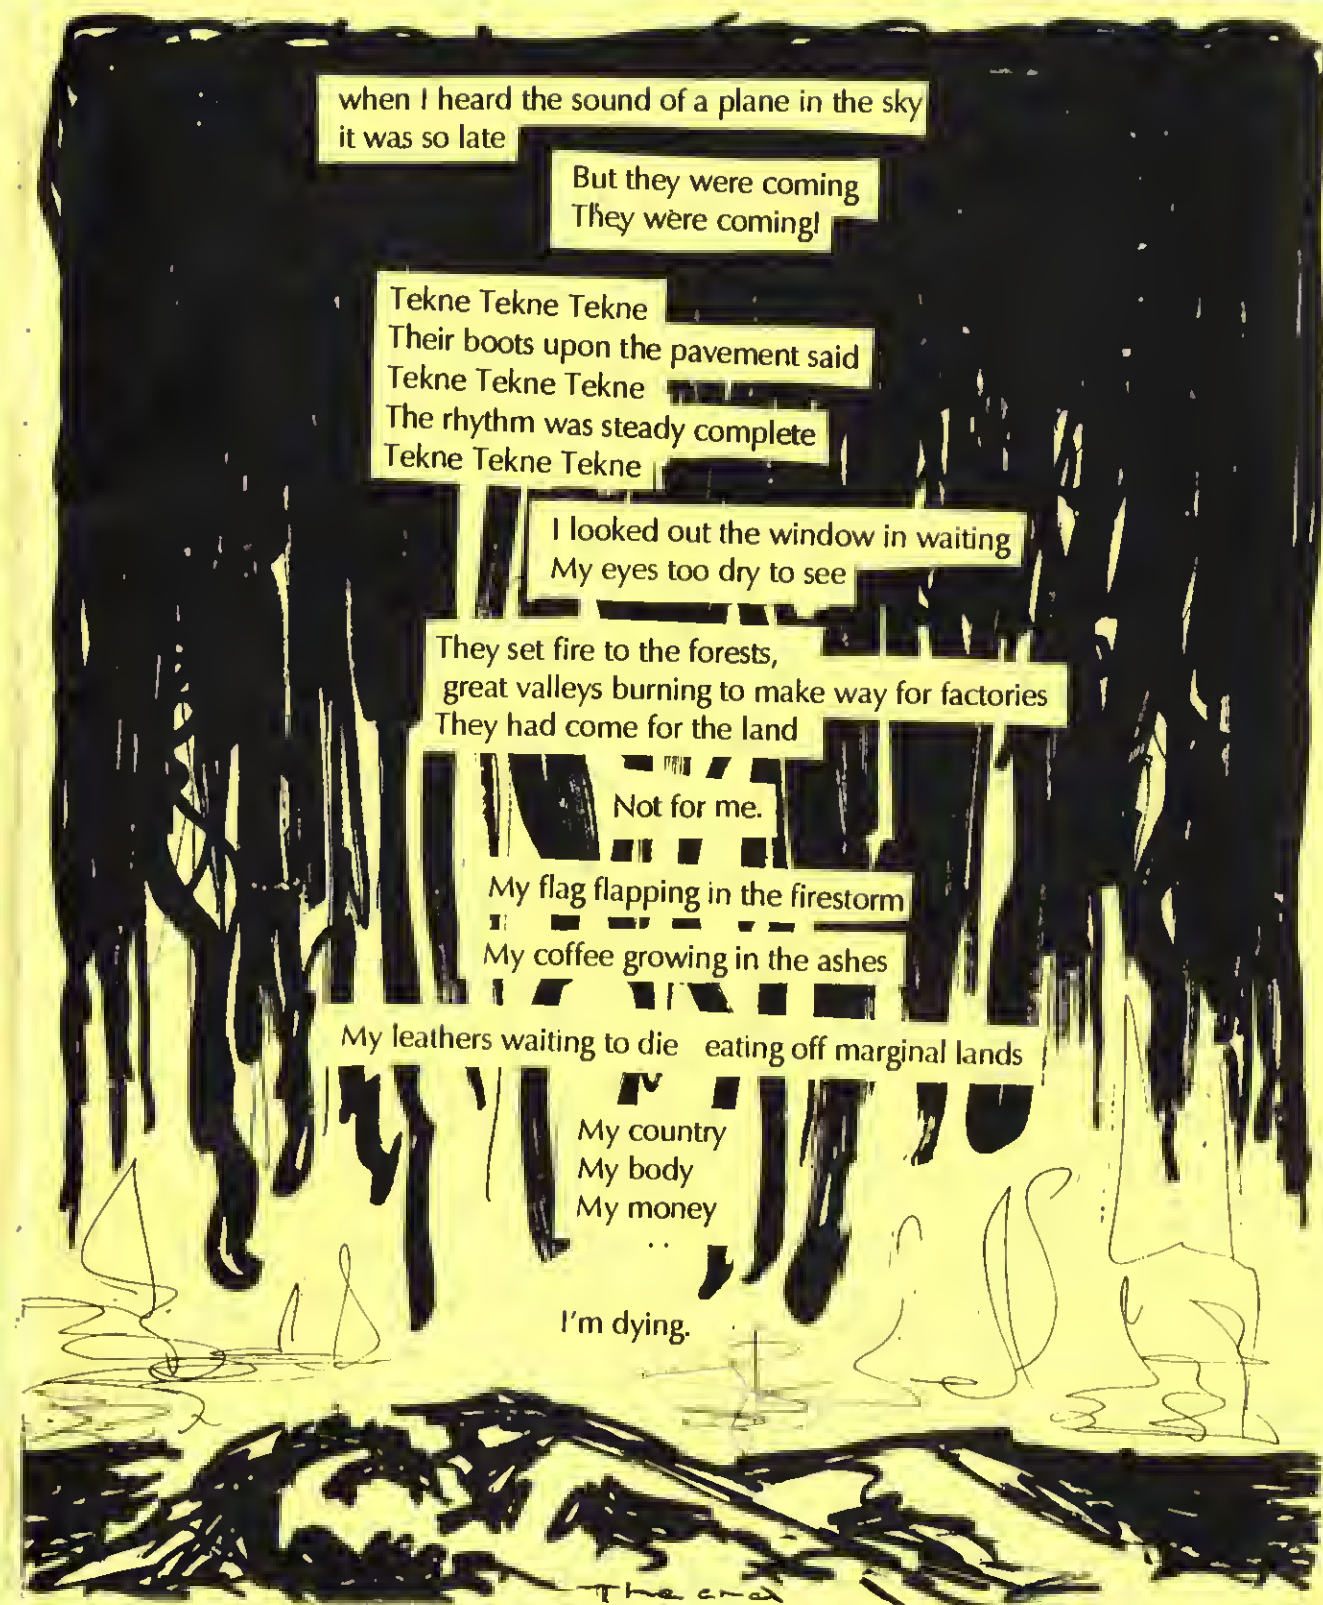 when I heard the sound of a plane in the sky
it was so late
But they were coming
They were coming!
Tekne Tekne Tekne
Their boots upon the pavement said
Tekne Tekne Tekne
The rhythm was steady complete
Tekne Tekne Tekne
I looked out the window in waiting
My eyes too dry to see
They set fire to the forests,
great valleys burning to make way for factories
They had come for the land
Not for me.
My flag flapping in the firestorm
My coffee growing in the ashes
My leathers waiting to die eating off marginal lands
My country
My body
My money
I'm dying.
The end